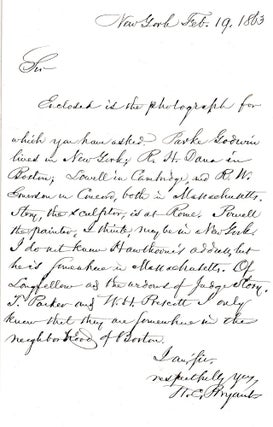 New York Feb. 19, 1863
Sir
Enclosed is the photograph for
which you have asked. Parke Godwin
lives in New York; R. H. Dana in
Boston; Lowell in Cambridge, and R. W.
Emerson in Concord, both in Massachusetts.
Story, the sculptor, is at Rome. Powell
the painter, I think, may be in New York.
I do not know Hawthorne's address, but
he is somewhere in Massachusetts. Of
Longfellow and the widows of Judge Story,
T. Parker and W. H. Prescott I only
know that they are somewhere in the
neighborhood of Boston.
I am sir,
respectfully yrs,
W. C. Bryant